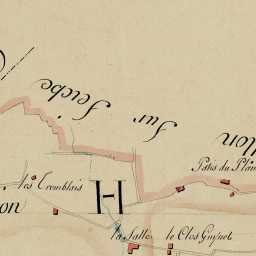 Sur Seiche
llon
Patis du Plan
les Tremblais
H
ion
la Salle
le Clos Guynet